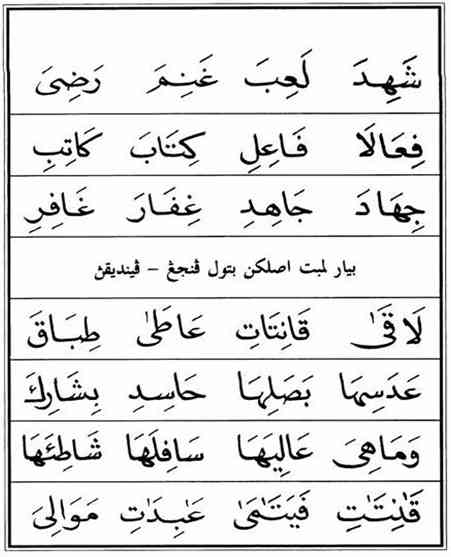 شَهِدَ لَعِبَ غَنِمَ رَضِىَ
فِعَالًا فَاعِلِ كِتَابَ كَاتِبِ
جِهَادَ جَاهِدِ غِفَارَ غَافِرِ
بيار لمبت اصلكن بتول ڤنجڠ - ڤينديقڽ
لَاقَىٰ قَانِتَاتِ عَاطَىٰ طِبَاقَ
عَدَسِهَا بَصَلِهَا حَاسِدِ بِشَارِكَ
وَمَاهِىَ عَالِيَهَا سَافِلَهَا شَاطِئَهَا
قَٰنِتَٰتِ فَيَتَٰمَىٰ عَٰبِدَٰتِ مَوَالِىَ